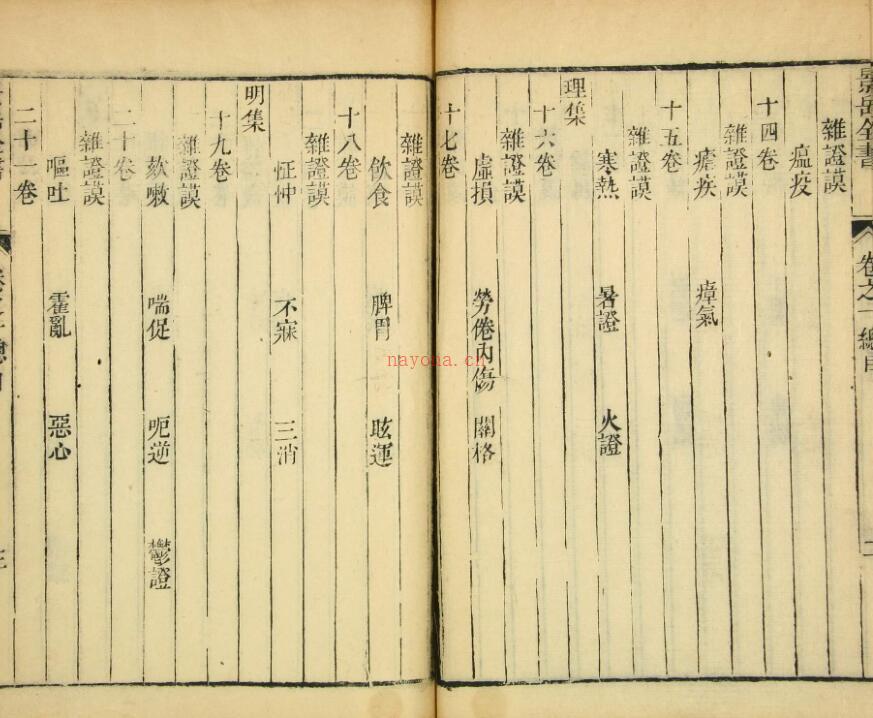 景岳全書 卷之一總目
雜證謨
瘟疫
十四卷
雜證謨
瘧疾 瘴氣
十五卷
雜證謨
寒熱 暑證 火證
理集
十六卷
雜證謨
虛損 勞倦內傷 關格
十七卷
雜證謨
飲食 脾胃 眩運
十八卷
雜證謨
怔忡 不寐 三消
明集
十九卷
雜證謨
欬嗽 喘促 呃逆 鬱證
二十卷
雜證謨
嘔吐 霍亂 惡心
二十一卷
nayona.cn